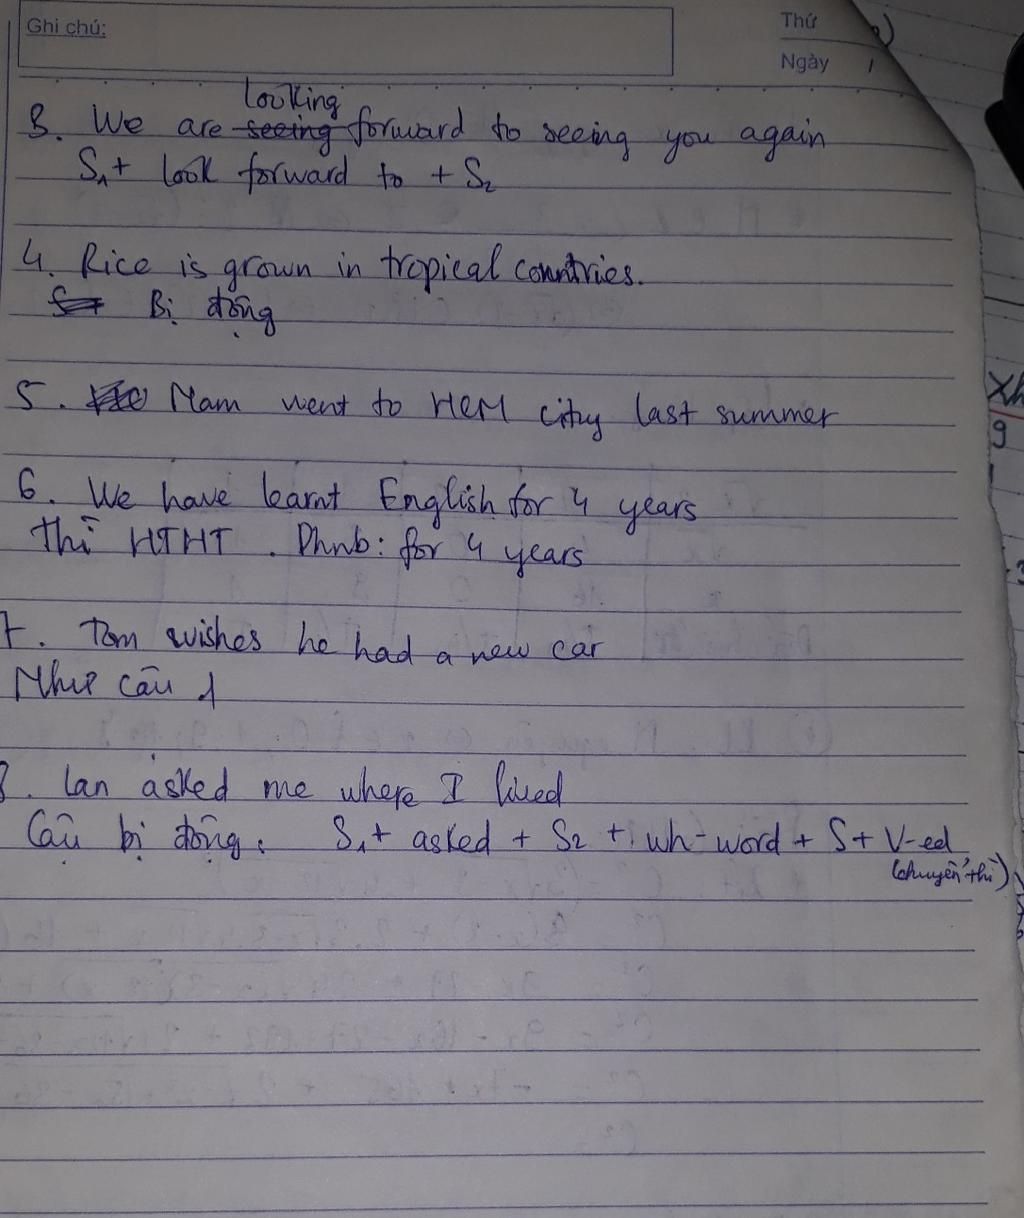 Ghi chú:
Thứ
Ngày
looking
3. We are seeing forward to seeing you again
S1 + look forward to + S2
4. Rice is grown in tropical countries.
Bị động
5. Nam went to HCM city last summer
6. We have learnt English for 4 years
Thì HTHT. Dhnb: for 4 years
7. Tom wishes he had a new car
Như câu 1
8. Lan asked me where I lived
Câu bị động: S1 + asked + S2 + wh-word + S + V-ed
(chuyển thì)
Xh
9